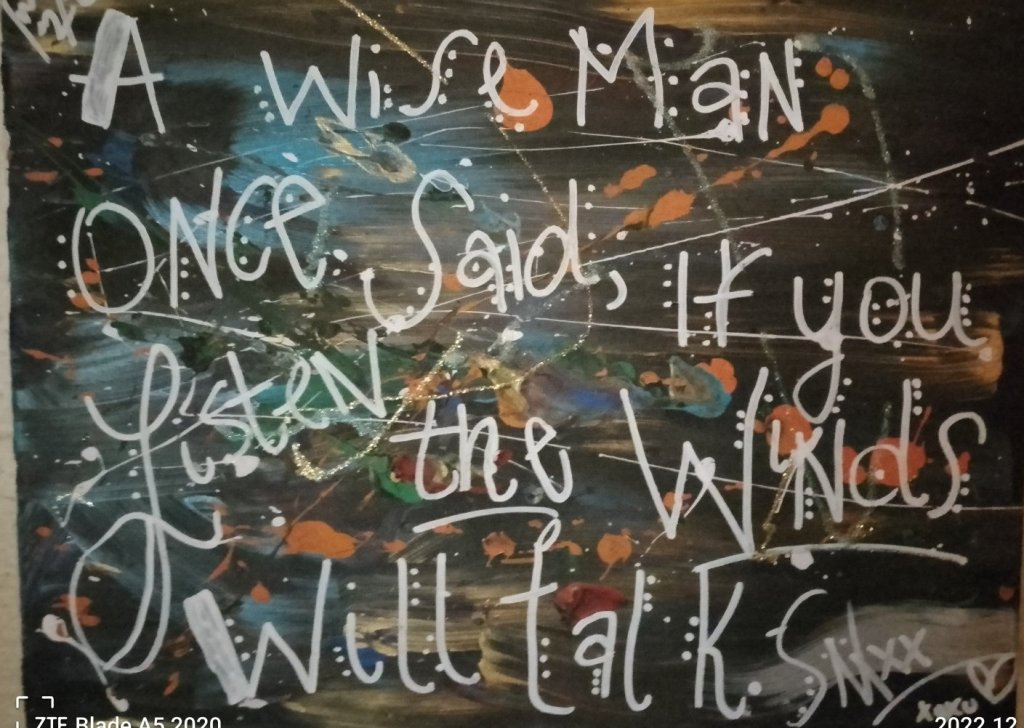 A Wise Man
Once Said, If you
Listen the Winds
Will talk.
SMxx
ZTE Blade A5 2020
2022.12